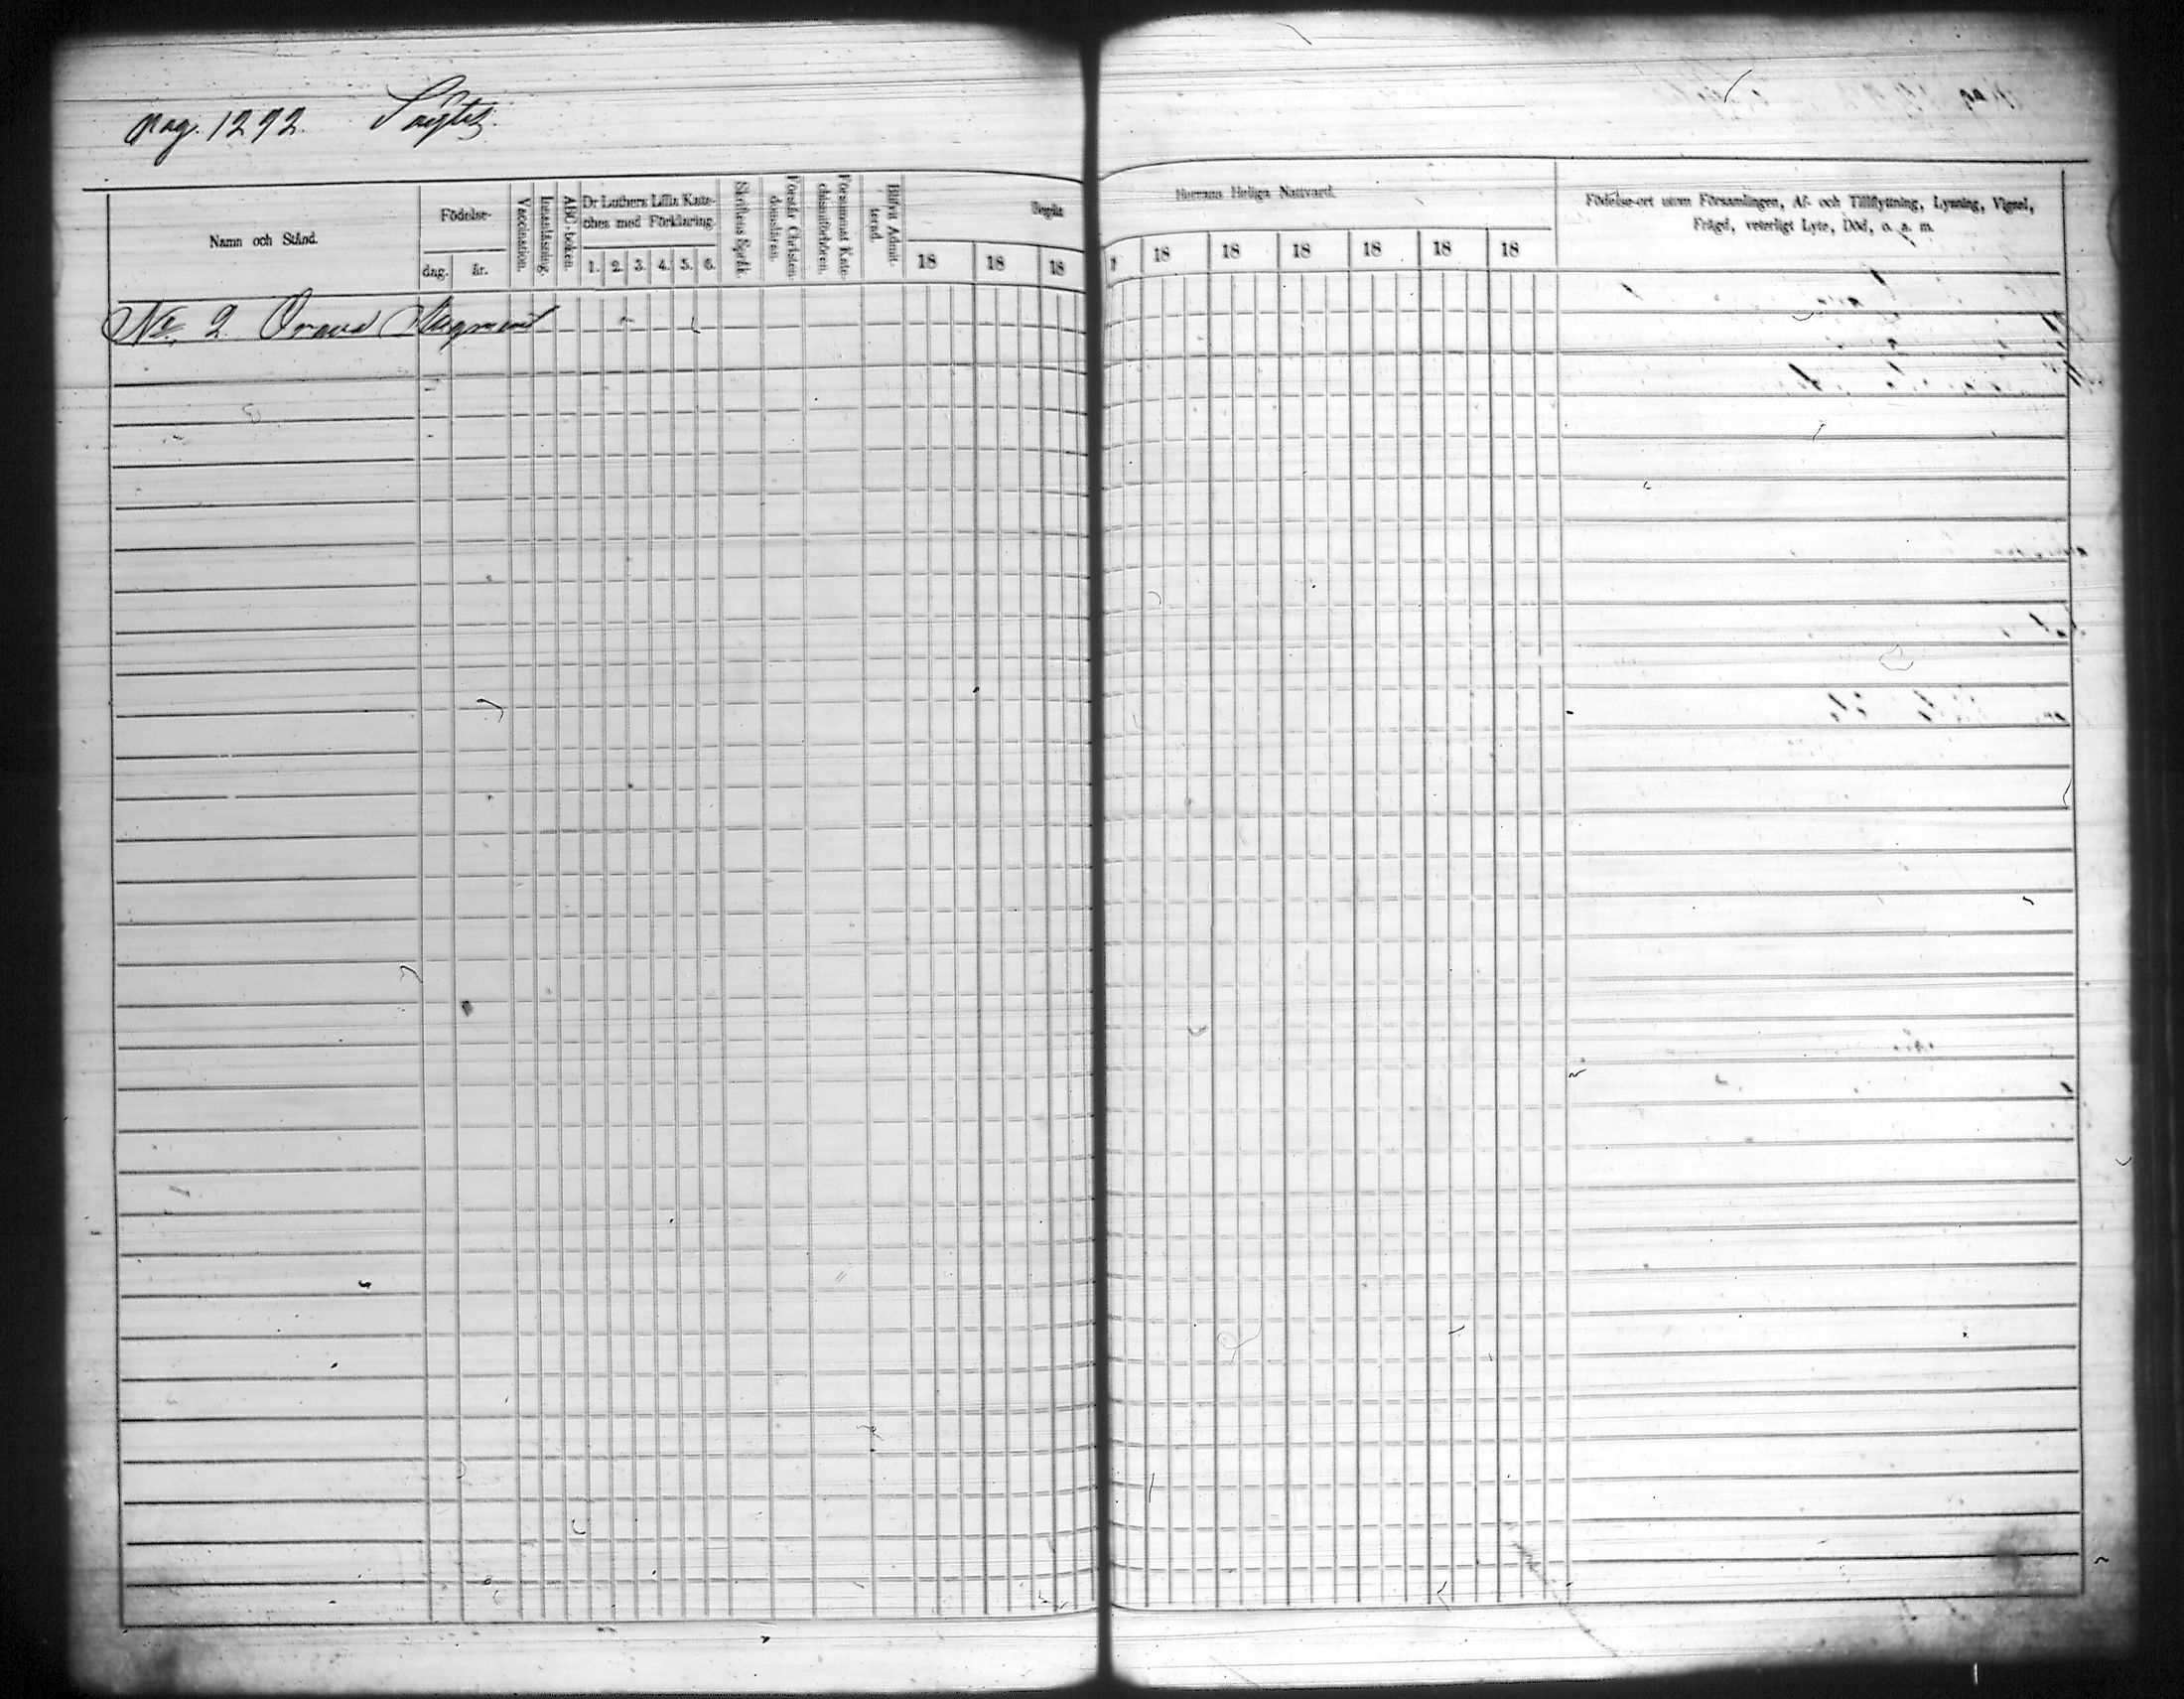 pag. 1292.
Namn och Stånd.
Födelse-
dag.
år.
Vaccination.
Innanläsning.
ABC-boken.
Dr Luthers Lilla Kate-
ches med Förklaring.
1. 2. 3. 4. 5. 6.
Skriftens Språk.
Förstår Christen-
domsläran.
Försummat Kate-
chismiförhören.
Blifvit Admit-
terad.
Begått
18 18 18
Herrans Heliga Nattvard.
18 18 18 18 18 18
Födelse-ort utom Församlingen, Af- och Tillflyttning, Lysning, Vigsel,
Frägd, veterligt Lyte, Död, o. s. m.
No. 2